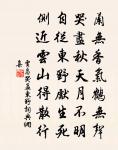 蘭無香氣鶴無聲
哭盡秋天月不明
自從東野先生死
側近雲山得散行
哭孟東野